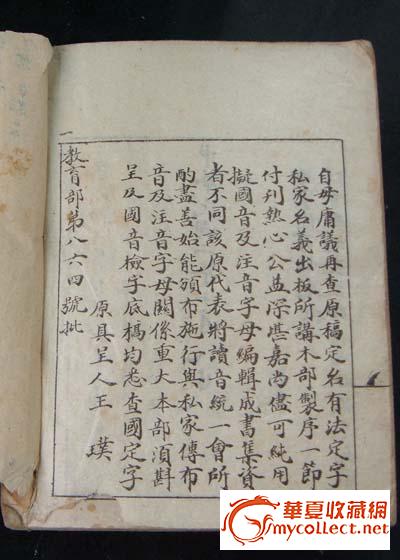 一
教育部第八六四號批
原具呈人王璞
呈及國音檢字底稿均悉查國定字
音及注音字母關係重大本部須斟
酌盡善始能頒布施行與私家傳布
者不同該原代表將讀音統一會所
擬國音及注音字母編輯成書集資
付刊熱心公益深堪嘉尚儘可純用
私家名義出板所請本部製序一節
自毋庸議再查原稿定名有法定字
華夏收藏網
mycollect.net